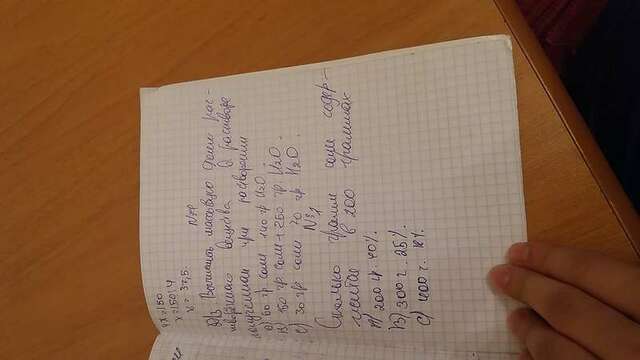 4x=150
x=150:4
x= 37,5.
Д/з. Вычислить массовую долю рас-
творённого вещества в растворе
полученном при растворении
а) 60 гр. соли 140 гр H₂O.
В) 150 гр соли + 250 гр. H₂O.
С) 30 гр соли гр H₂O.
№1
Сколько грамм соли содер-
житься в 200 граммах
А) 200 40%.
В) 300 г. 25%.
С) 400 г.